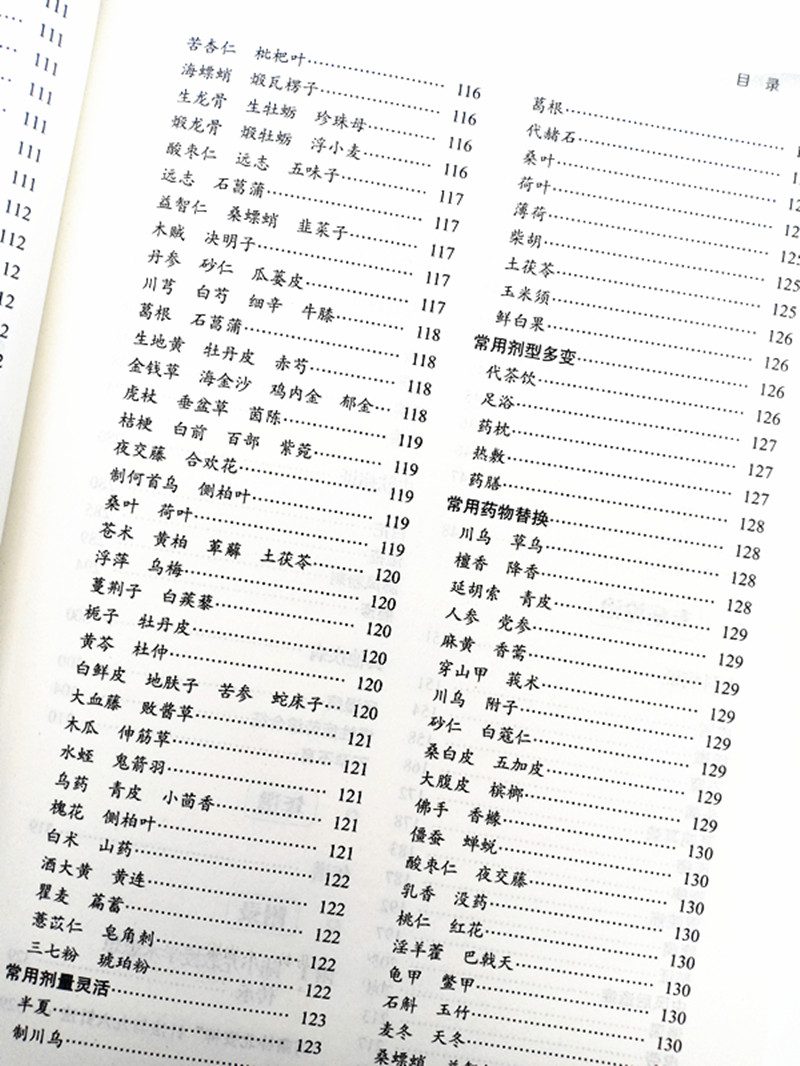 111
111
111
111
111
111
111
112
112
12
12
2
2
苦杏仁 枇杷叶 116
海螵蛸 煅瓦楞子 116
生龙骨 生牡蛎 珍珠母 116
煅龙骨 煅牡蛎 浮小麦 116
酸枣仁 远志 五味子 117
远志 石菖蒲 117
益智仁 桑螵蛸 韭菜子 117
木贼 决明子 117
丹参 砂仁 瓜蒌皮 117
川芎 白芍 细辛 牛膝 118
葛根 石菖蒲 118
生地黄 牡丹皮 赤芍 118
金钱草 海金沙 鸡内金 郁金 118
虎杖 垂盆草 茵陈 119
桔梗 白前 百部 紫菀 119
夜交藤 合欢花 119
制何首乌 侧柏叶 119
桑叶 荷叶 119
苍术 黄柏 萆薢 土茯苓 120
浮萍 乌梅 120
蔓荆子 白蒺藜 120
栀子 牡丹皮 120
黄芩 杜仲 120
白鲜皮 地肤子 苦参 蛇床子 120
大血藤 败酱草 121
木瓜 伸筋草 121
水蛭 鬼箭羽 121
乌药 青皮 小茴香 121
槐花 侧柏叶 121
白术 山药 122
酒大黄 黄连 122
瞿麦 萹蓄 122
薏苡仁 皂角刺 122
三七粉 琥珀粉 122
常用剂量灵活 123
半夏 123
制川乌
目 录
葛根
代赭石
桑叶
荷叶
薄荷
柴胡 125
土茯苓 125
玉米须 126
鲜白果 126
常用剂型多变 126
代茶饮 126
足浴 127
药枕 127
热敷 127
药膳 128
常用药物替换 128
川乌 草乌 128
檀香 降香 128
延胡索 青皮 129
人参 党参 129
麻黄 香薷 129
穿山甲 莪术 129
川乌 附子 129
砂仁 白蔻仁 129
桑白皮 五加皮 129
大腹皮 槟榔 129
佛手 香橼 130
僵蚕 蝉蜕 130
酸枣仁 夜交藤 130
乳香 没药 130
桃仁 红花 130
淫羊藿 巴戟天 130
龟甲 鳖甲 130
石斛 玉竹 130
麦冬 天冬 130
桑螵蛸